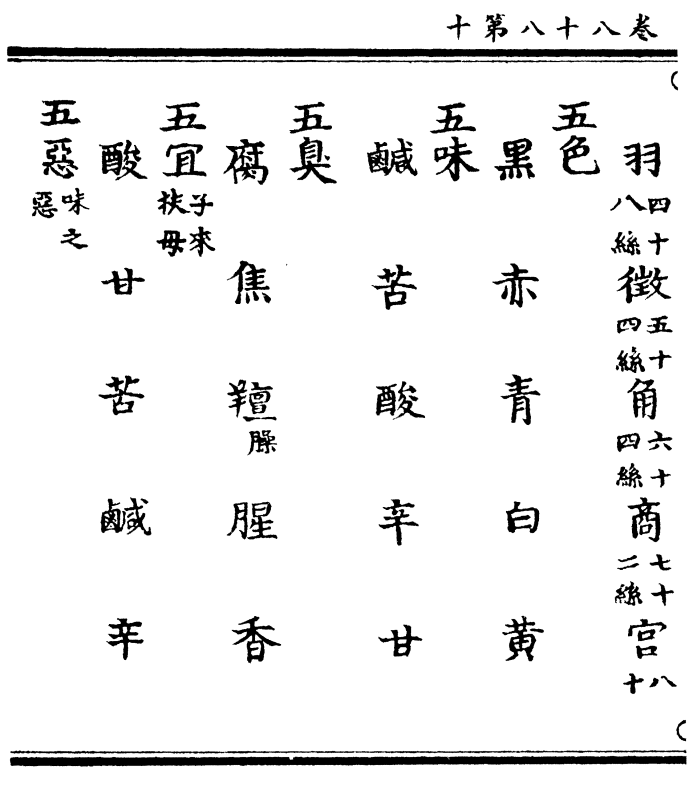 卷八十八第十
羽四十八絲徵五十四絲角六十四絲商七十二絲宮八十
五色
黑赤青白黃
五味
鹹苦酸辛甘
五臭
腐焦羶臊腥香
五宜子來扶母
酸甘苦鹹辛
五惡味之惡